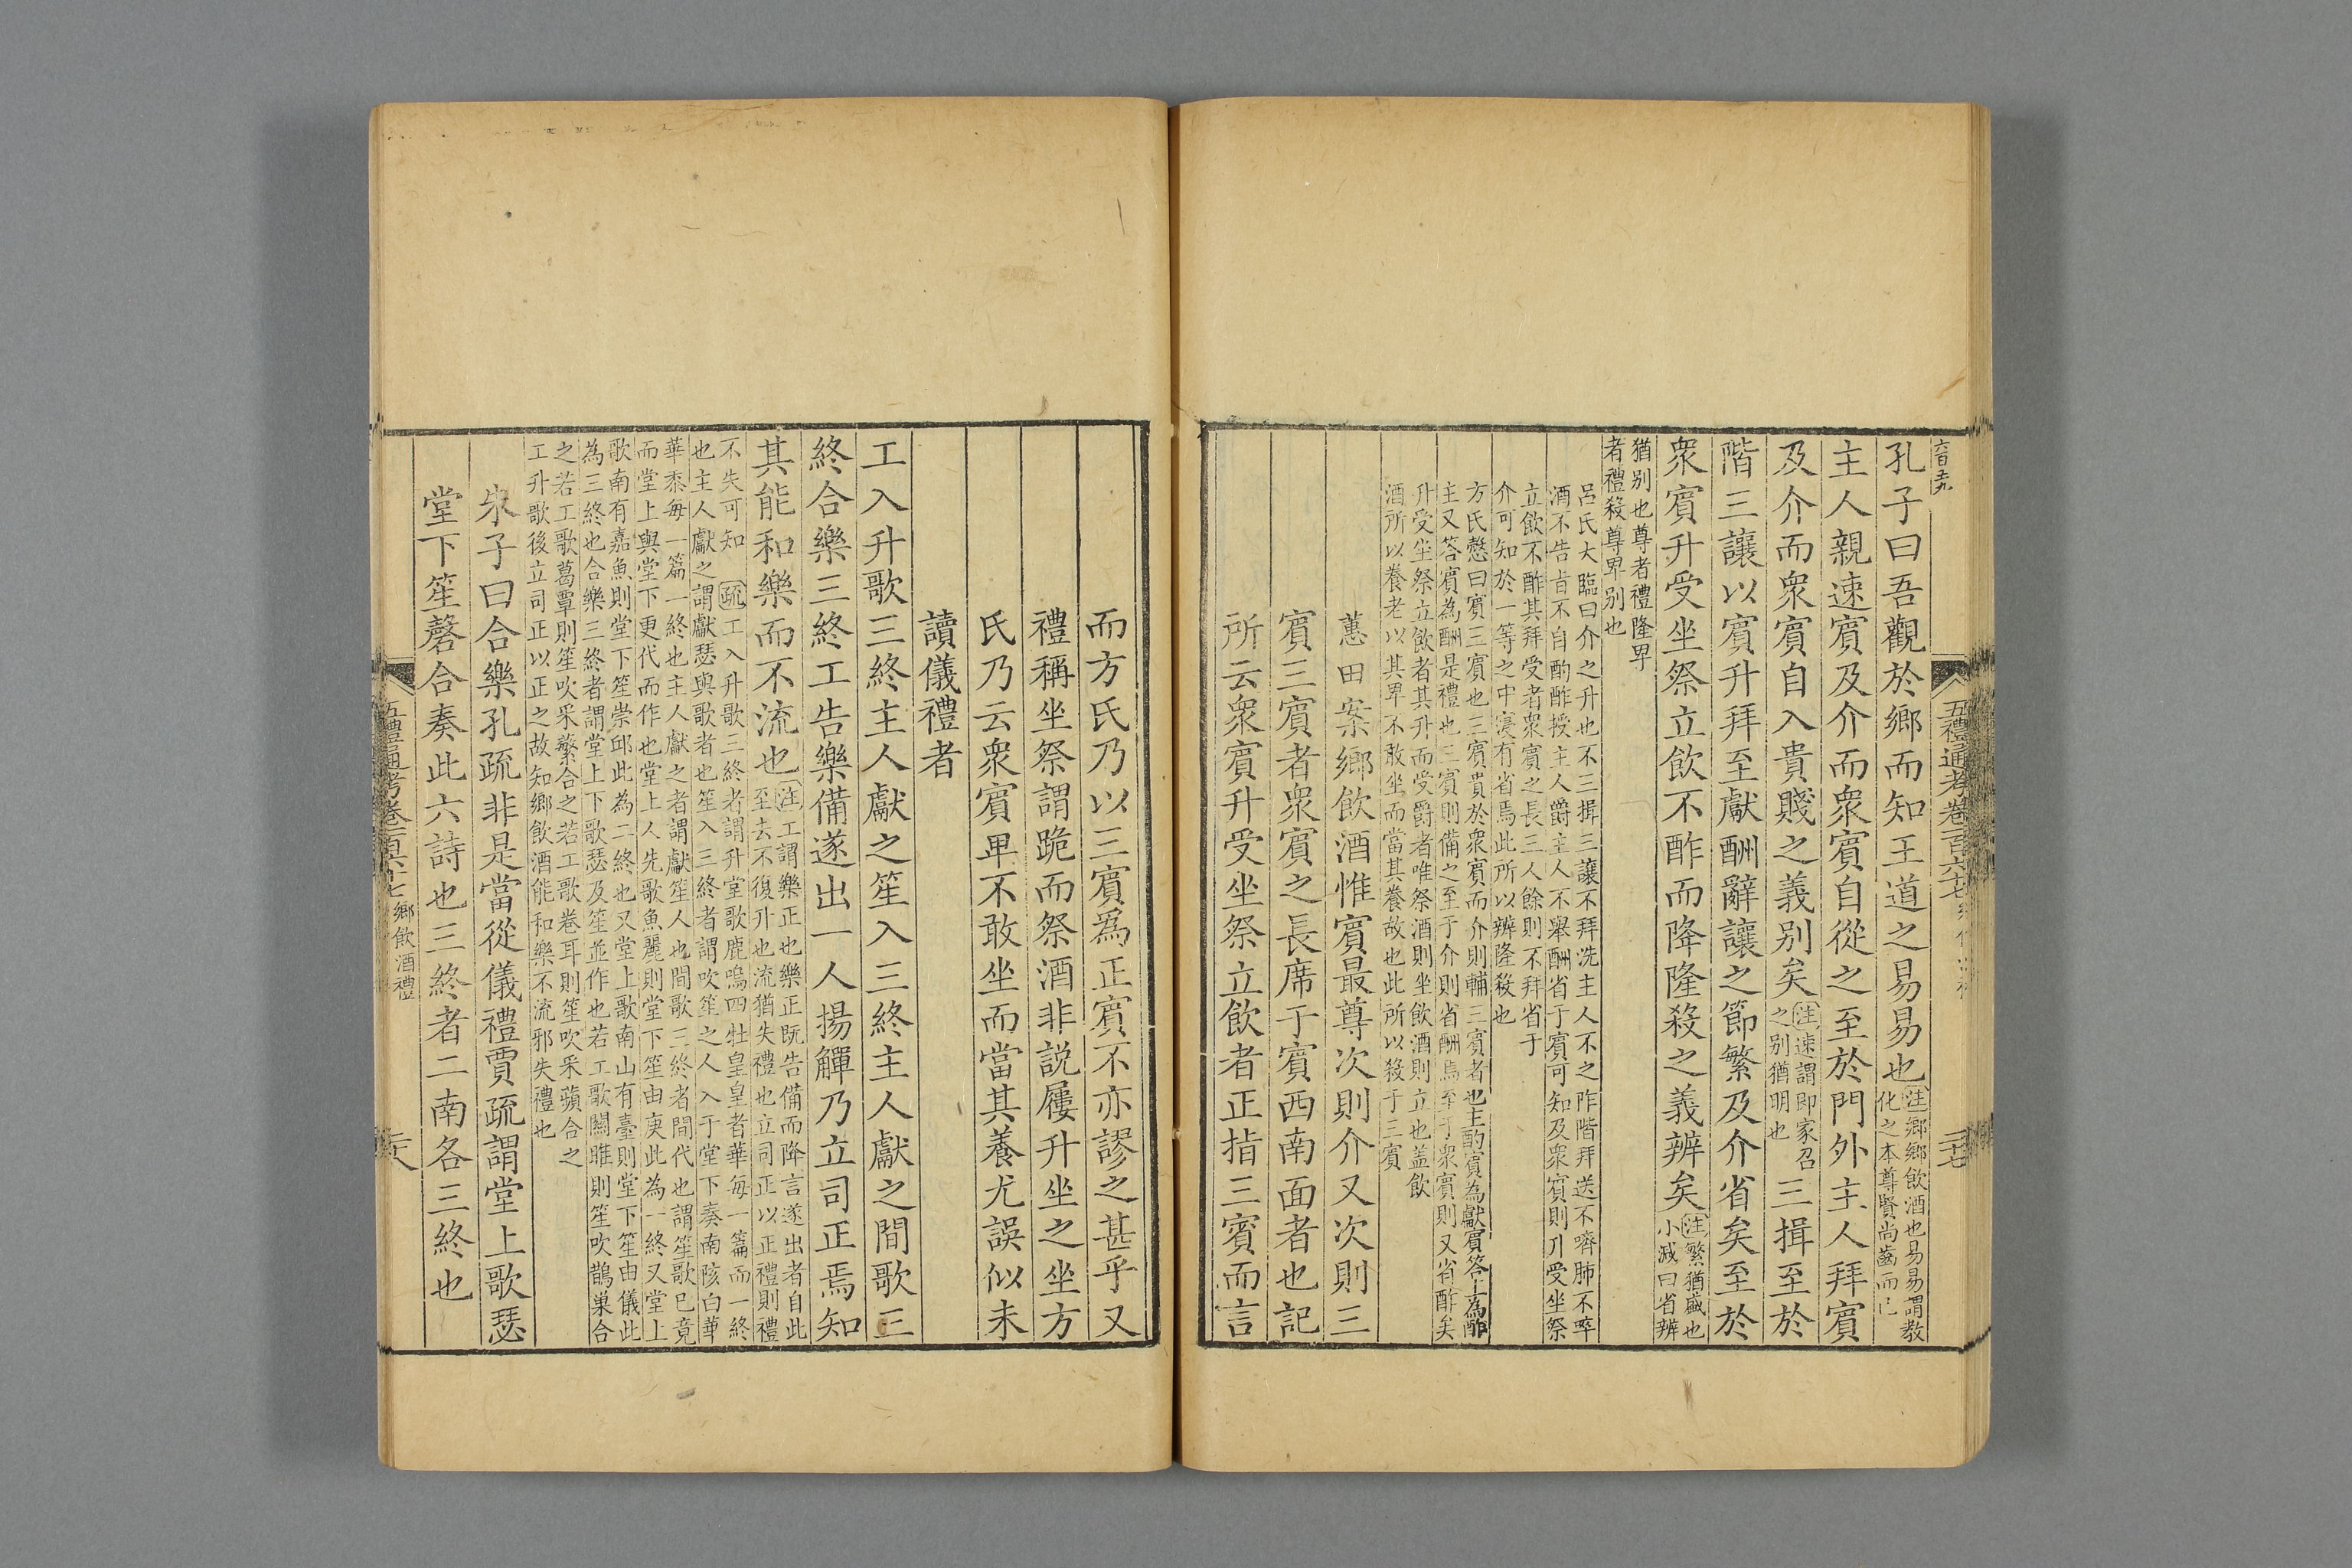 五禮通考卷二百六十七
二十七
孔子曰吾觀於鄉而知王道之易易也注鄉鄉飲酒也易易謂教
化之本尊賢尚齒而已
主人親速賓及介而衆賓自從之至於門外主人拜賓
及介而衆賓自入貴賤之義别矣注速謂即家召
之别猶明也三揖至於
階三讓以賓升拜至獻酬辭讓之節繁及介省矣至於
衆賓升受坐祭立飲不酢而降隆殺之義辨矣注繁猶盛也
小減曰省辨
猶别也尊者禮隆卑
者禮殺尊卑别也
吕氏大臨曰介之升也不三揖三讓不拜洗主人不之阼階拜送不嚌肺不啐
酒不告旨不自酌酢授主人爵主人不舉酬省于賓可知及衆賓則升受坐祭
立飲不酢其拜受者衆賓之長三人餘則不拜省于
介可知於一等之中寖有省焉此所以辨隆殺也
方氏慤曰賓三賓也三賓貴於衆賓而介則輔三賓者也主酌賓為獻賓答主為酢
主又答賓為酬是禮也三賓則備之至于介則省酬焉至于衆賓則又省酢矣
升受坐祭立飲者其升而受爵者唯祭酒則坐飲酒則立也蓋飲
酒所以養老以其卑不敢坐而當其養故也此所以殺于三賓
蕙田案鄉飲酒惟賓最尊次則介又次則三
賓三賓者衆賓之長席于賓西南面者也記
所云衆賓升受坐祭立飲者正指三賓而言
而方氏乃以三賓爲正賓不亦謬之甚乎又
禮稱坐祭謂跪而祭酒非説屨升坐之坐方
氏乃云衆賓卑不敢坐而當其養尤誤似未
讀儀禮者
工入升歌三終主人獻之笙入三終主人獻之間歌三
終合樂三終工告樂備遂出一人揚觶乃立司正焉知
其能和樂而不流也注工謂樂正也樂正既告備而降言遂出者自此
至去不復升也流猶失禮也立司正以正禮則禮
不失可知　疏工入升歌三終者謂升堂歌鹿鳴四牡皇皇者華每一篇而一終
也主人獻之謂獻瑟與歌者也笙入三終者謂吹笙之人入于堂下奏南陔白華
華黍每一篇一終也主人獻之者謂獻笙人也間歌三終者間代也謂笙歌已竟
而堂上與堂下更代而作也堂上人先歌魚麗則堂下笙由庚此為一終又堂上
歌南有嘉魚則堂下笙崇邱此為二終也又堂上歌南山有臺則堂下笙由儀此
為三終也合樂三終者謂堂上下歌瑟及笙並作也若工歌關雎則笙吹鵲巢合
之若工歌葛覃則笙吹采蘩合之若工歌卷耳則笙吹采蘋合之
工升歌後立司正以正之故知鄉飲酒能和樂不流邪失禮也
朱子曰合樂孔疏非是當從儀禮賈疏謂堂上歌瑟
堂下笙磬合奏此六詩也三終者二南各三終也
五禮通考卷二百六十七鄉飲酒禮
二十八